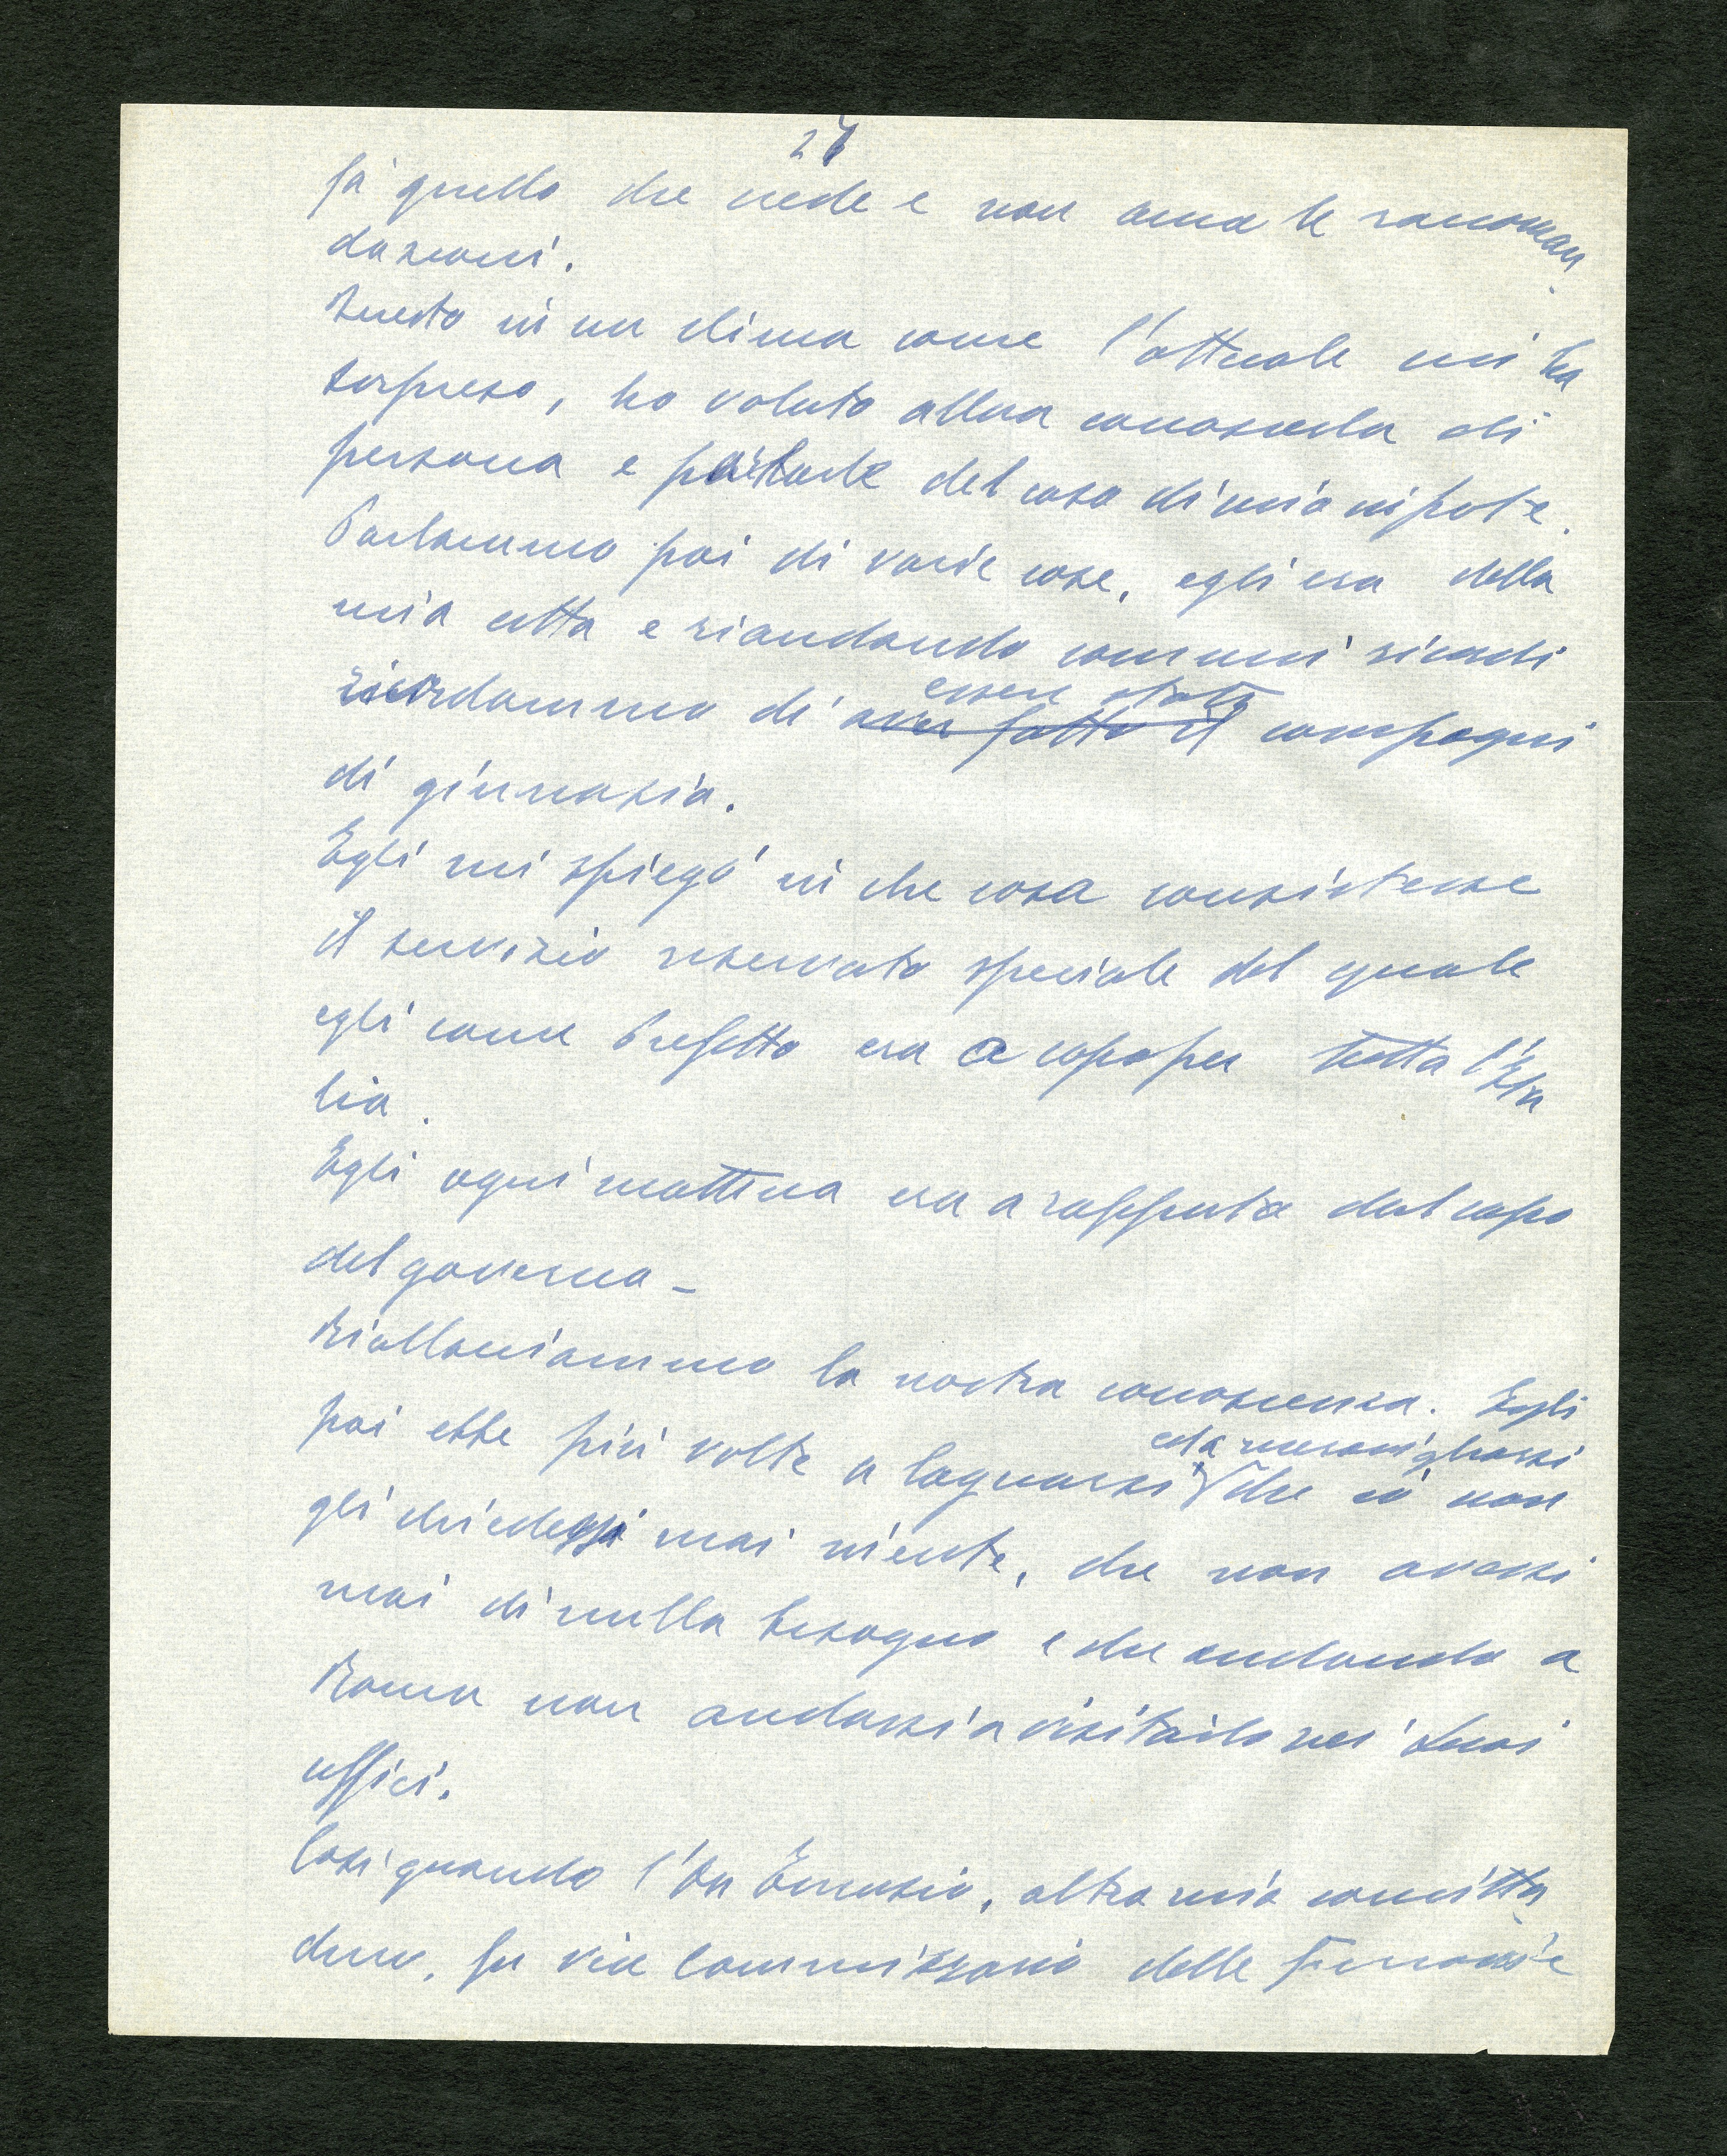 27
fa quello che crede e non ama le raccoman
dazioni.
Questo in un clima come l'attuale mi ha
sorpreso, ho voluto allora conoscerlo di
persona e parlarle del caso di mio nipote.
Parlammo poi di varie cose, egli era della
mia città e riandando comuni ricordi
ricordammo di aver fatto il essere stati compagni
di ginnasio.
Egli mi spiegò in che cosa consistesse
il servizio riservato speciale del quale
egli come Prefetto era a capo per tutta l'Ita
lia.
Egli ogni mattina era a rapporto dal capo
del governo –
Riallacciammo la nostra conoscenza. Egli
poi ebbe più volte a lagnarsi ed a meravigliarsi che io non
gli chiedessi mai niente, che non avessi
mai di nulla bisogno e che andando a
Roma non andassi a visitarlo nei suoi
uffici.
Così quando l'On , altro mio concitta
dino, fu vice Commissario delle Ferrovie